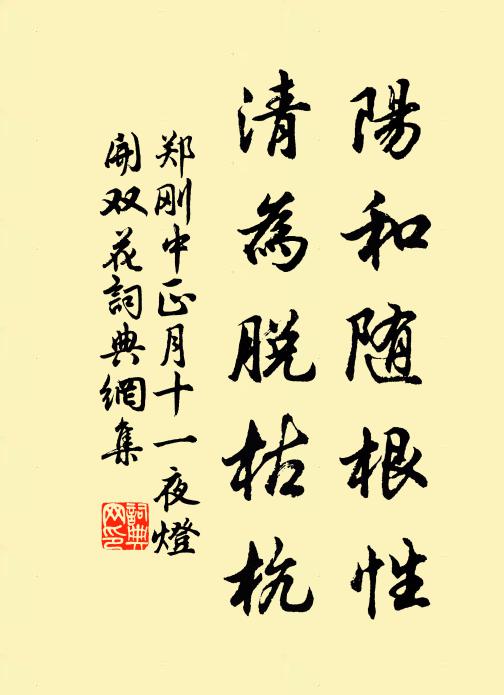 陽和随根性
清為脱枯杭
郑刚中正月十一夜燈
開双花詞典網集
詞典
网印